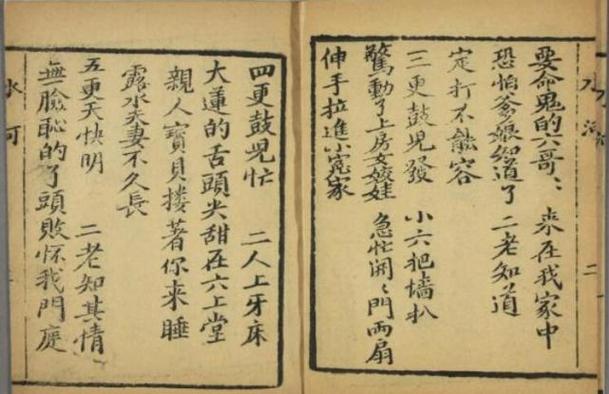 要命鬼的六哥〻 来在我家中
恐怕爹娘知道了 二老知道
定打不能容
三更鼓児發 小六把墙扒
驚動了上房女姣娃 急忙開〻門兩扇
伸手拉進小寃家
四更鼓児忙 二人上牙床
大蓮的舌頭尖甜在六上堂
親人寶貝摟著你来睡
露水夫妻不久長
五更天快明 二老知其情
無臉恥的了頭敗怀我門庭
水河